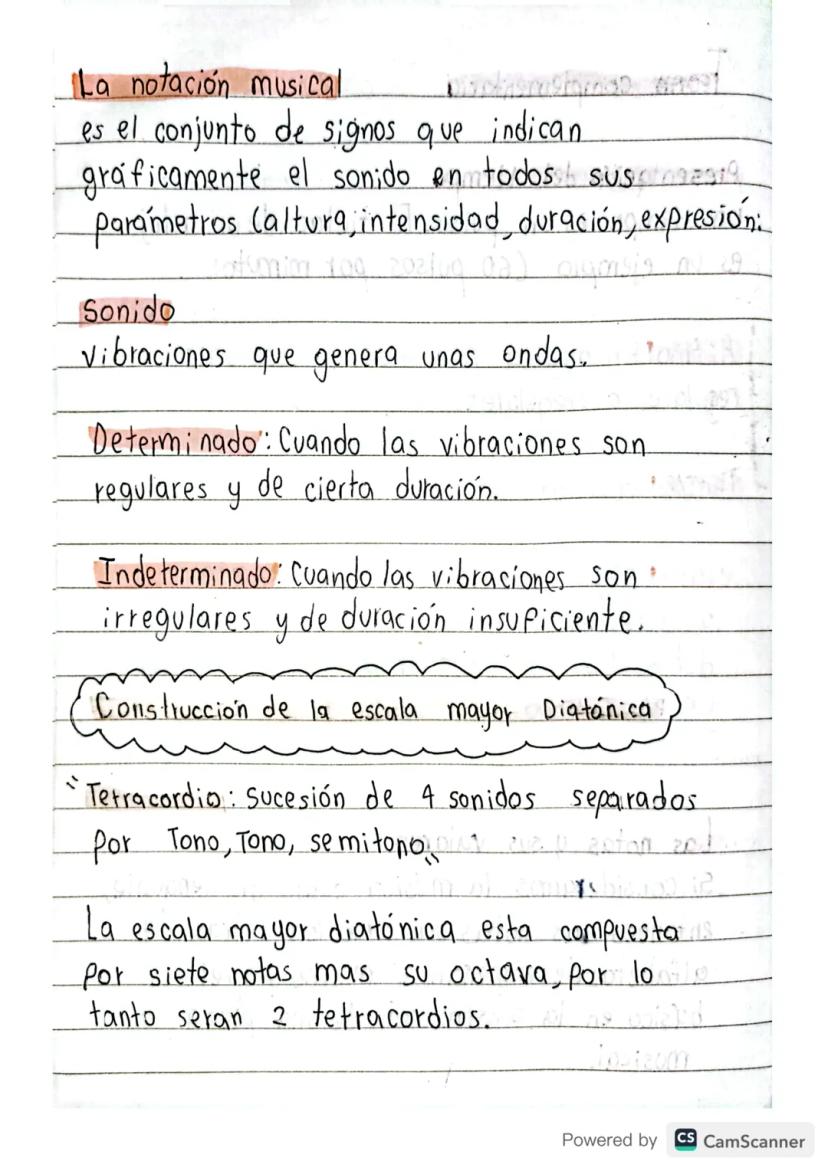 La notación musical
es el conjunto de signos que indican
gráficamente el sonido en todos sus
parámetros (altura, intensidad, duración, expresión.
Sonido
vibraciones que genera unas ondas.
Determinado: Cuando las vibraciones son
regulares y de cierta duración.
Indeterminado: Cuando las vibraciones son
irregulares y de duración insuficiente.
Construcción de la escala mayor Diatónica
"Tetracordio: Sucesión de 4 sonidos separados
por Tono, Tono, semitono."
La escala mayor diatónica esta compuesta
por siete notas mas su octava, por lo
tanto seran 2 tetracordios.
Powered by CS CamScanner